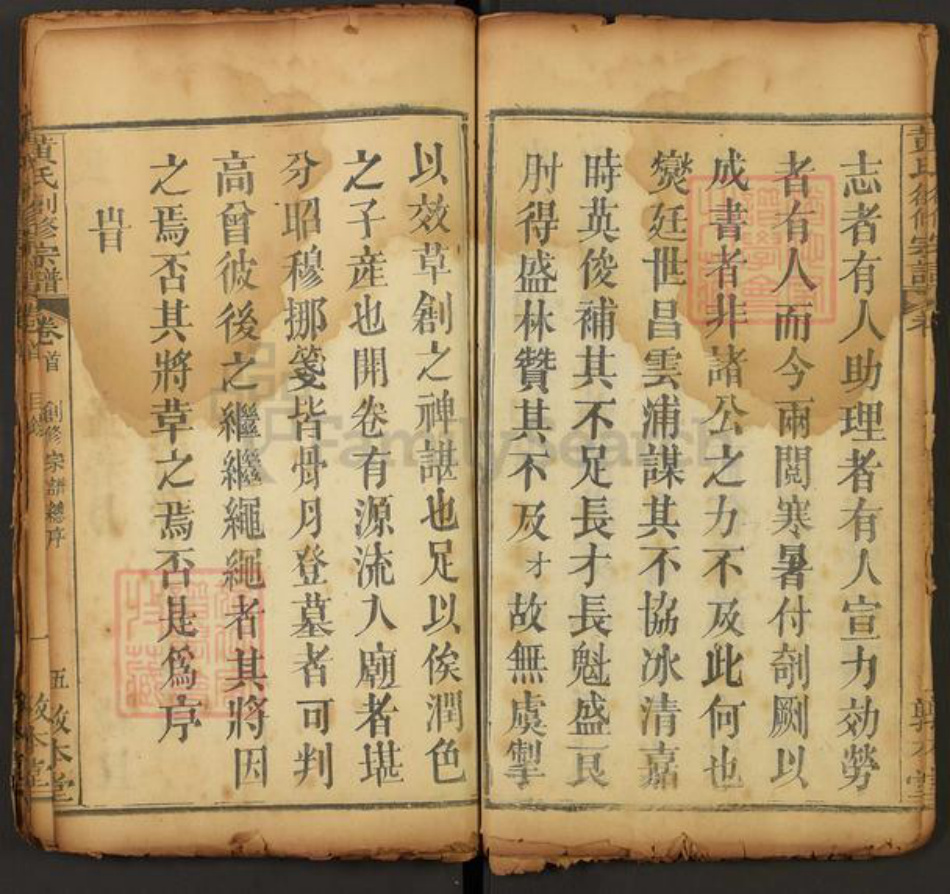 志者有人助理者有人宣力効勞
者有人而今兩閱寒暑付剞劂以
成書者非諸公之力不及此何也
爕廷世昌雲浦謀其不協冰清嘉
時英俊補其不足長才長魁盛艮
肘得盛林贊其不及才故無虞掣
以效草創之神諶也足以俟潤色
之子産也開卷有源流入廟者堪
分昭穆挪箋皆骨月登墓者可判
高曾彼後之繼繼繩繩者其將因
之焉否其將草之焉否是爲序
旹
黃氏創修宗譜
卷首
創修宗譜總序
五
敦本堂
FamilySearch